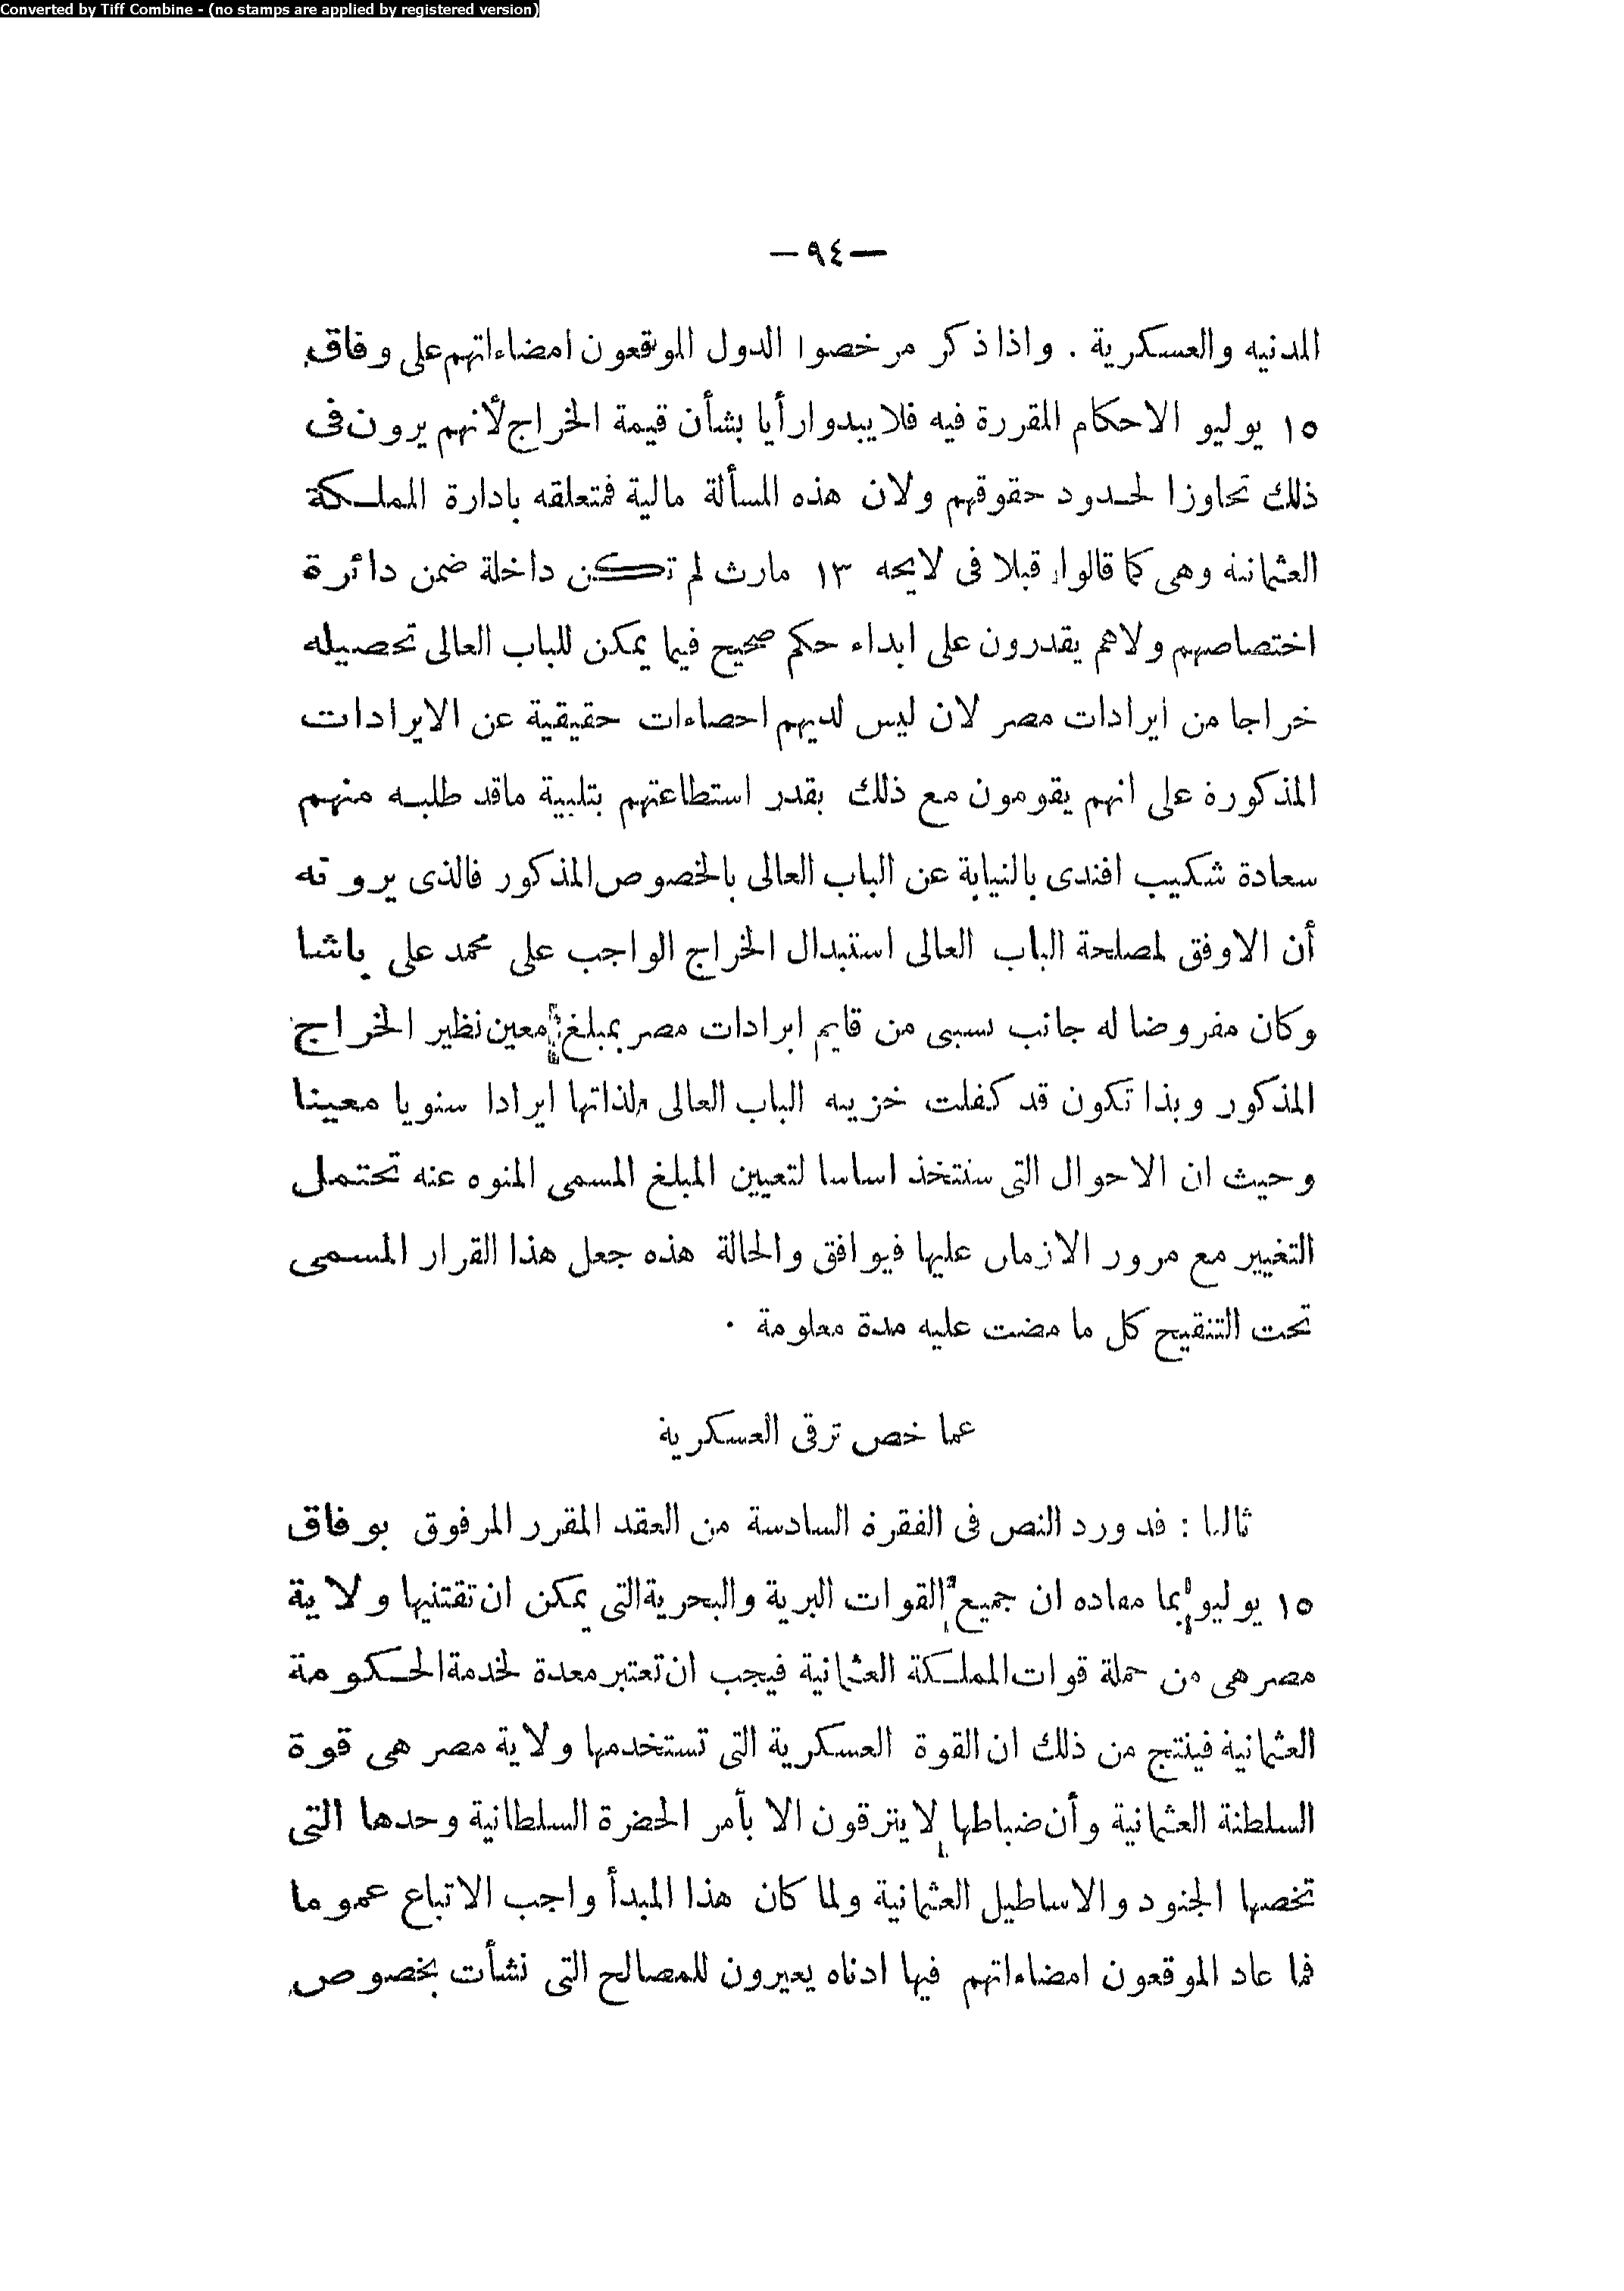 Converted by Tiff Combine - (no stamps are applied by registered version)
— ٩٤ —
المدنيه والعسكرية . واذا ذكر مرخصوا الدول الموقعون امضاءاتهم على وفاق
١٥ يوليو الاحكام المقررة فيه فلا يبدوا رأيا بشأن قيمة الخراج لأنهم يرون فى
ذلك تجاوزا لحدود حقوقهم ولان هذه المسألة مالية فمتعلقه بادارة المملكة
العثمانية وهى كما قالوا قبلا فى لايحه ١٣ مارث لم تكن داخلة ضمن دائرة
اختصاصهم ولاهم يقدرون على ابداء حكم صحيح فيما يمكن للباب العالى تحصيله
خراجا من ايرادات مصر لان ليس لديهم احصاءات حقيقية عن الايرادات
المذكورة على انهم يقومون مع ذلك بقدر استطاعتهم بتلبية ماقد طلبه منهم
سعادة شكيب افندى بالنيابة عن الباب العالى بالخصوص المذكور فالذى يرونه
أن الاوفق لمصلحة الباب العالى استبدال الخراج الواجب على محمد على باشا
وكان مفروضا له جانب نسبى من قايم ايرادات مصر بمبلغ معين نظير الخراج
المذكور وبذا تكون قد كفلت خزينه الباب العالى لذاتها ايرادا سنويا معينا
وحيث ان الاحوال التى ستتخذ اساسا لتعيين المبلغ المسمى المنوه عنه تحتمل
التغيير مع مرور الازمان عليها فيوافق والحالة هذه جعل هذا القرار المسمى
تحت التنقيح كل ما مضت عليه مدة معلومة .
عما خص ترقى العسكرية
ثالثا : قد ورد النص فى الفقرة السادسة من العقد المقرر المرفوق بوفاق
١٥ يوليو بما مفاده ان جميع القوات البرية والبحرية التى يمكن ان تقتنيها ولاية
مصر هى من جملة قوات المملكة العثمانية فيجب ان تعتبر معدة لخدمة الحكومة
العثمانية فينتج من ذلك ان القوة العسكرية التى تستخدمها ولاية مصر هى قوة
السلطنة العثمانية وأن ضباطها لا يترقون الا بأمر الحضرة السلطانية وحدها التى
تخصها الجنود والاساطيل العثمانية ولما كان هذا المبدأ واجب الاتباع عموما
فما عاد الموقعون امضاءاتهم فيها ادناه يعيرون للمصالح التى نشأت بخصوص